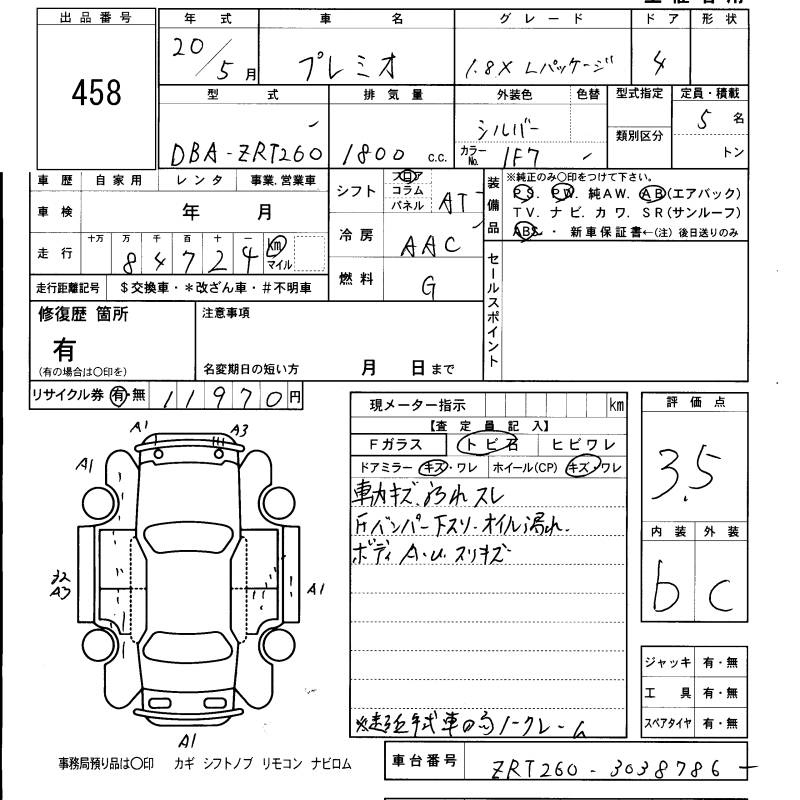 出品番号
458
年式
20/5月
車名
プレミオ
グレード
1.8X Lパッケージ
ドア
4
形状
型式
DBA-ZRT260
排気量
1800 c.c.
外装色
シルバー
色替
カラーNo.
1F7
型式指定
類別区分
定員・積載
5名
トン
車歴 自家用 レンタ 事業、営業車
車検 年 月
走行
十万 万 千 百 十 一
8 4 7 2 4
km
マイル
走行距離記号 $交換車・*改ざん車・#不明車
シフト
フロア
コラム
パネル
AT
冷房
AAC
燃料
G
装備品
※純正のみ〇印をつけて下さい。
PS. PW. 純AW. AB(エアバック)
TV. ナビ. カワ. SR(サンルーフ)
ABS. ・ 新車保証書←(注)後日送りのみ
セールスポイント
修復歴 箇所
有
(有の場合は〇印を)
注意事項
名変期日の短い方 月 日まで
リサイクル券 有・無 11970円
現メーター指示 km
【査定員記入】
Fガラス トビ石 ヒビワレ
ドアミラー キズ・ワレ ホイール(CP) キズ・ワレ
スレ
バンパー下スリ.オイル漏れ.
ボディ A.U.スリキズ
年式車の為ノークレーム
評価点
3.5
内装 外装
b C
ジャッキ 有・無
工具 有・無
スペアタイヤ 有・無
A1 A3
A1
A3
A1
A1
事務局預り品は〇印 カギ シフトノブ リモコン ナビロム
車台番号
ZRT260-3038786